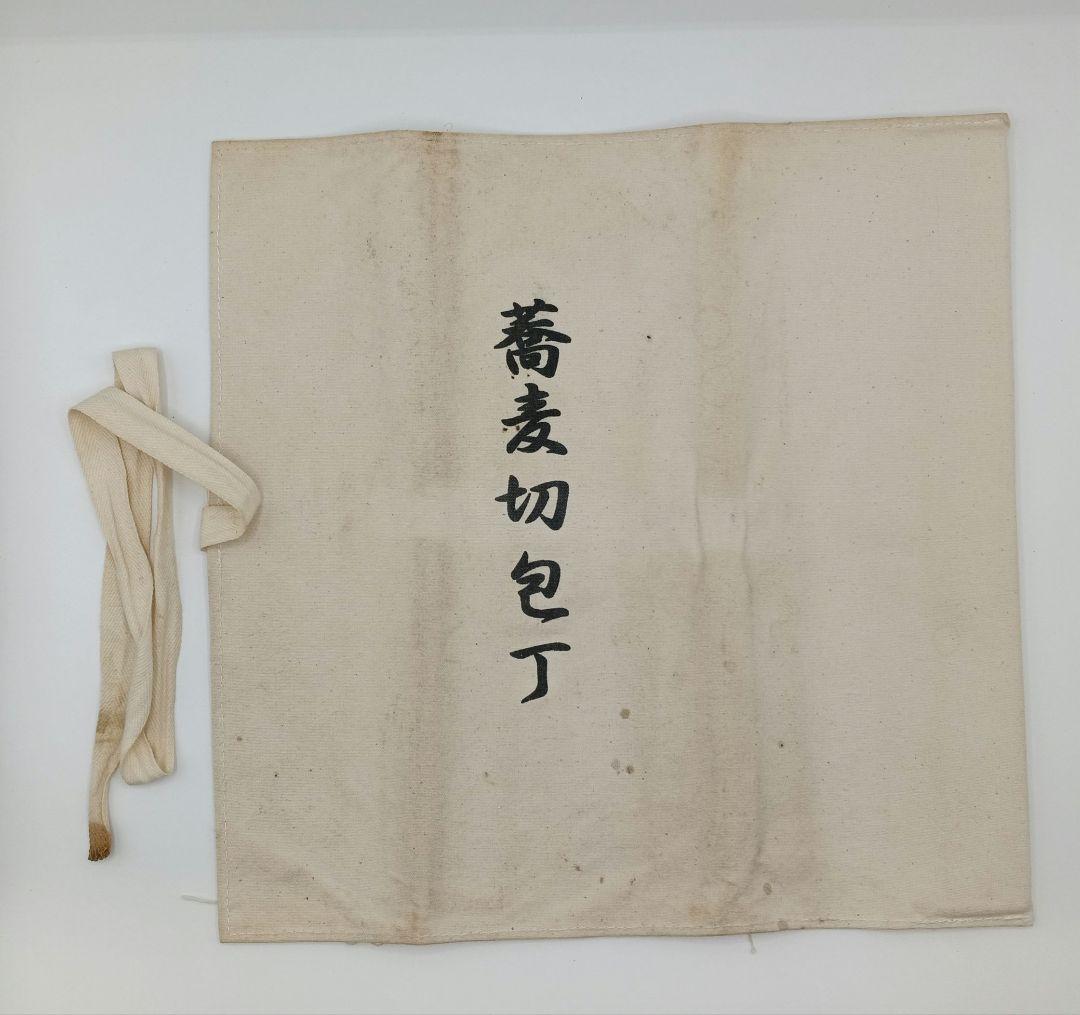 蕎麦切包丁